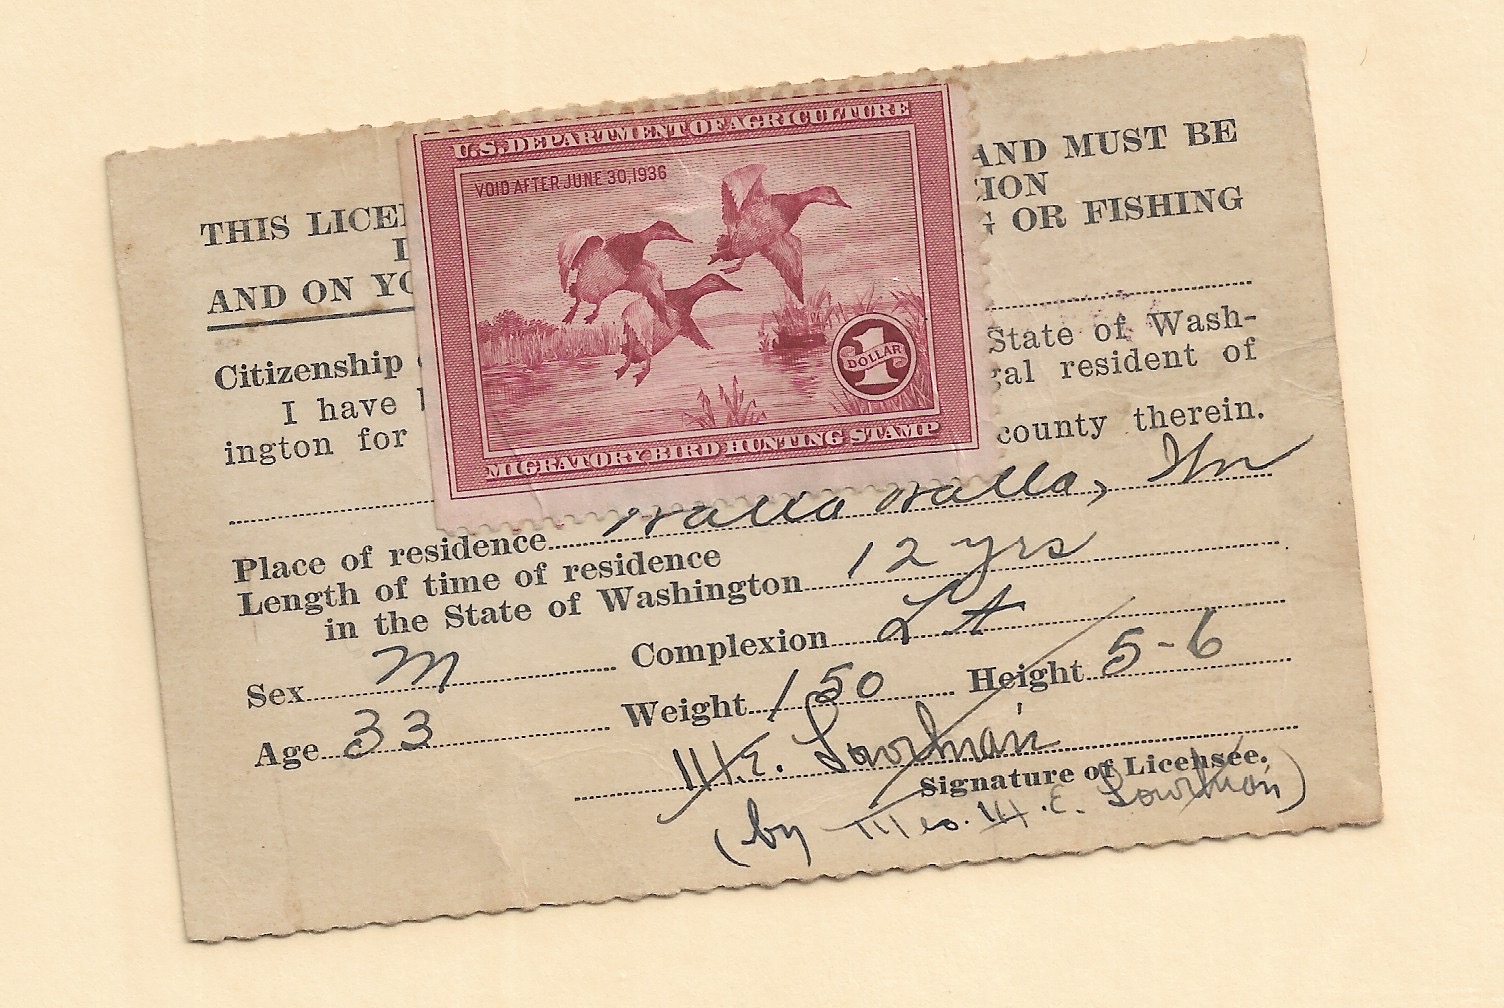 U.S. DEPARTMENT OF AGRICULTURE
VOID AFTER JUNE 30, 1936
1
DOLLAR
MIGRATORY BIRD HUNTING STAMP
THIS LICE AND MUST BE
ION
AND ON YO G OR FISHING
Citizenship
State of Wash-
I have gal resident of
ington for county therein.
Place of residence Walla Walla, Wn
Length of time of residence
in the State of Washington 12 yrs
Sex M Complexion Lt
Age 33 Weight 150 Height 5-6
H.E. Lowman
Signature of Licensee.
(by Mrs. H.E. Lowman)